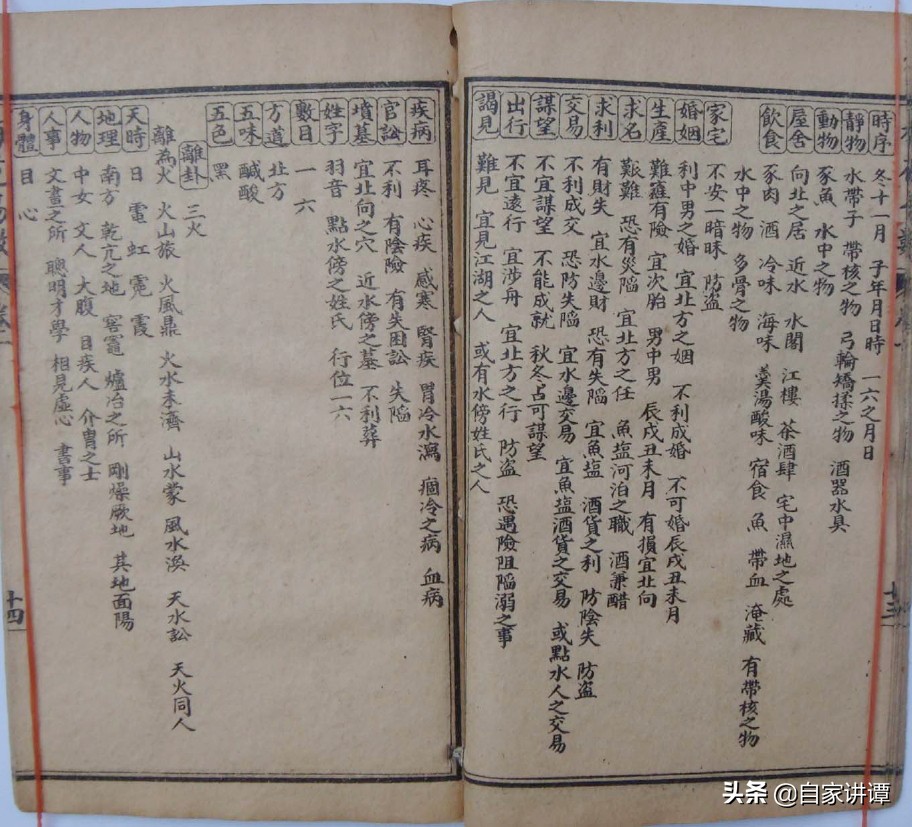 時序 冬十一月 子年月日時 一六之月日
靜物 水帶子 帶核之物 弓輪矯揉之物 酒器水具
動物 豕魚 水中之物
屋舍 向北之居 近水 水閣 江樓 茶酒肆 宅中濕地之處
飲食 豕肉 酒 冷味 海味 羹湯酸味 宿食 魚 帶血 淹藏 有帶核之物
水中之物 多骨之物
家宅 不安一暗昧 防盜
婚姻 利中男之婚 宜北方之姻 不利成婚 不可婚辰戌丑未月
生產 難產有險 宜次胎 男中男 辰戌丑未月 有損宜北向
求名 艱難 恐有災陷 宜北方之任 魚塩河泊之職 酒兼醋
求利 有財失 宜水邊財 恐有失陷 宜魚塩 酒貨之利 防陰失 防盜
交易 不利成交 恐防失陷 宜水邊交易 宜魚塩酒貨之交易 或點水人之交易
謀望 不宜謀望 不能成就 秋冬占可謀望
出行 不宜遠行 宜涉舟 宜北方之行 防盜 恐遇險阻陷溺之事
謁見 難見 宜見江湖之人 或有水傍姓氏之人
十三
疾病 耳疼 心疾 感寒 腎疾 胃冷水瀉 痼冷之病 血病
官訟 不利 有陰險 有失困訟 失陷
墳墓 宜北向之穴 近水傍之墓 不利葬
姓字 羽音 點水傍之姓氏 行位一六
數目 一 六
方道 北方
五味 鹹酸
五色 黑
離卦 三火
離為火 火山旅 火風鼎 火水未濟 山水蒙 風水渙 天水訟 天火同人
天時 日 電 虹 霓 霞
地理 南方 乾亢之地 窑竈 爐冶之所 剛燥厥地 其地面陽
人物 中女 文人 大腹 目疾人 介冑之士
人事 文畫之所 聰明才學 相見虛心 書事
身體 目 心
十四
头条 @自家讲谭